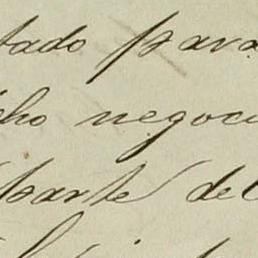 tado para
cho negoci
parte del